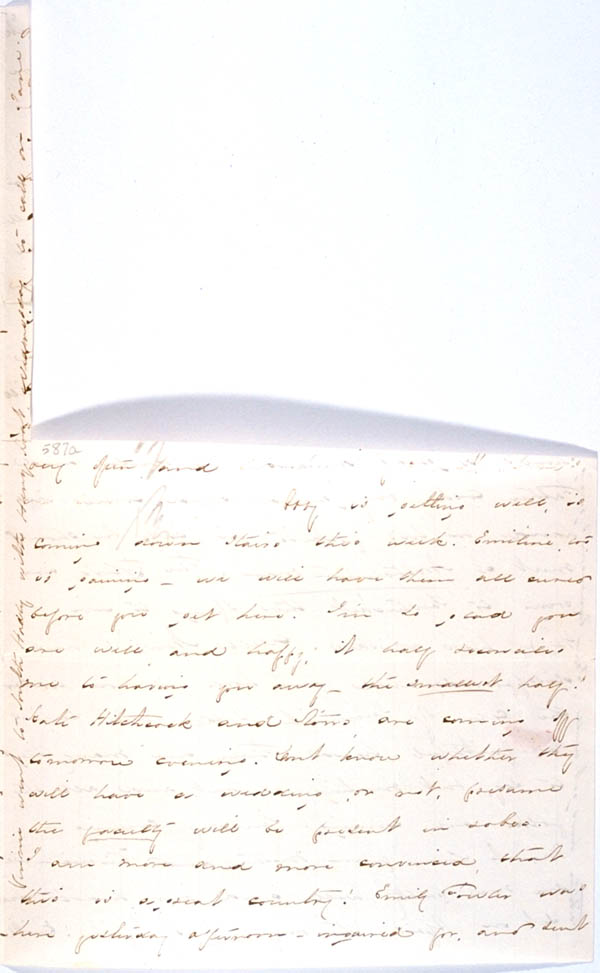 587a
very often
Abby is getting well, is
coming down stairs this week. Emeline, too
is gaining - we will have them all cured
before you get here. I'm so glad you
are well and happy, it half reconciles
me to having you away - the smallest half!
Kate Hitchcock and Storrs, are coming off
tomorrow evening. Dont know whether they
will have a wedding, or not, presume
the faculty will be present in robes.
I am more and more convinced, that
this is a great country! Emily Fowler was
here yesterday afternoon - inquired for, and sent
Vinnie went to South Hadley with wednesday, to call on Jane.